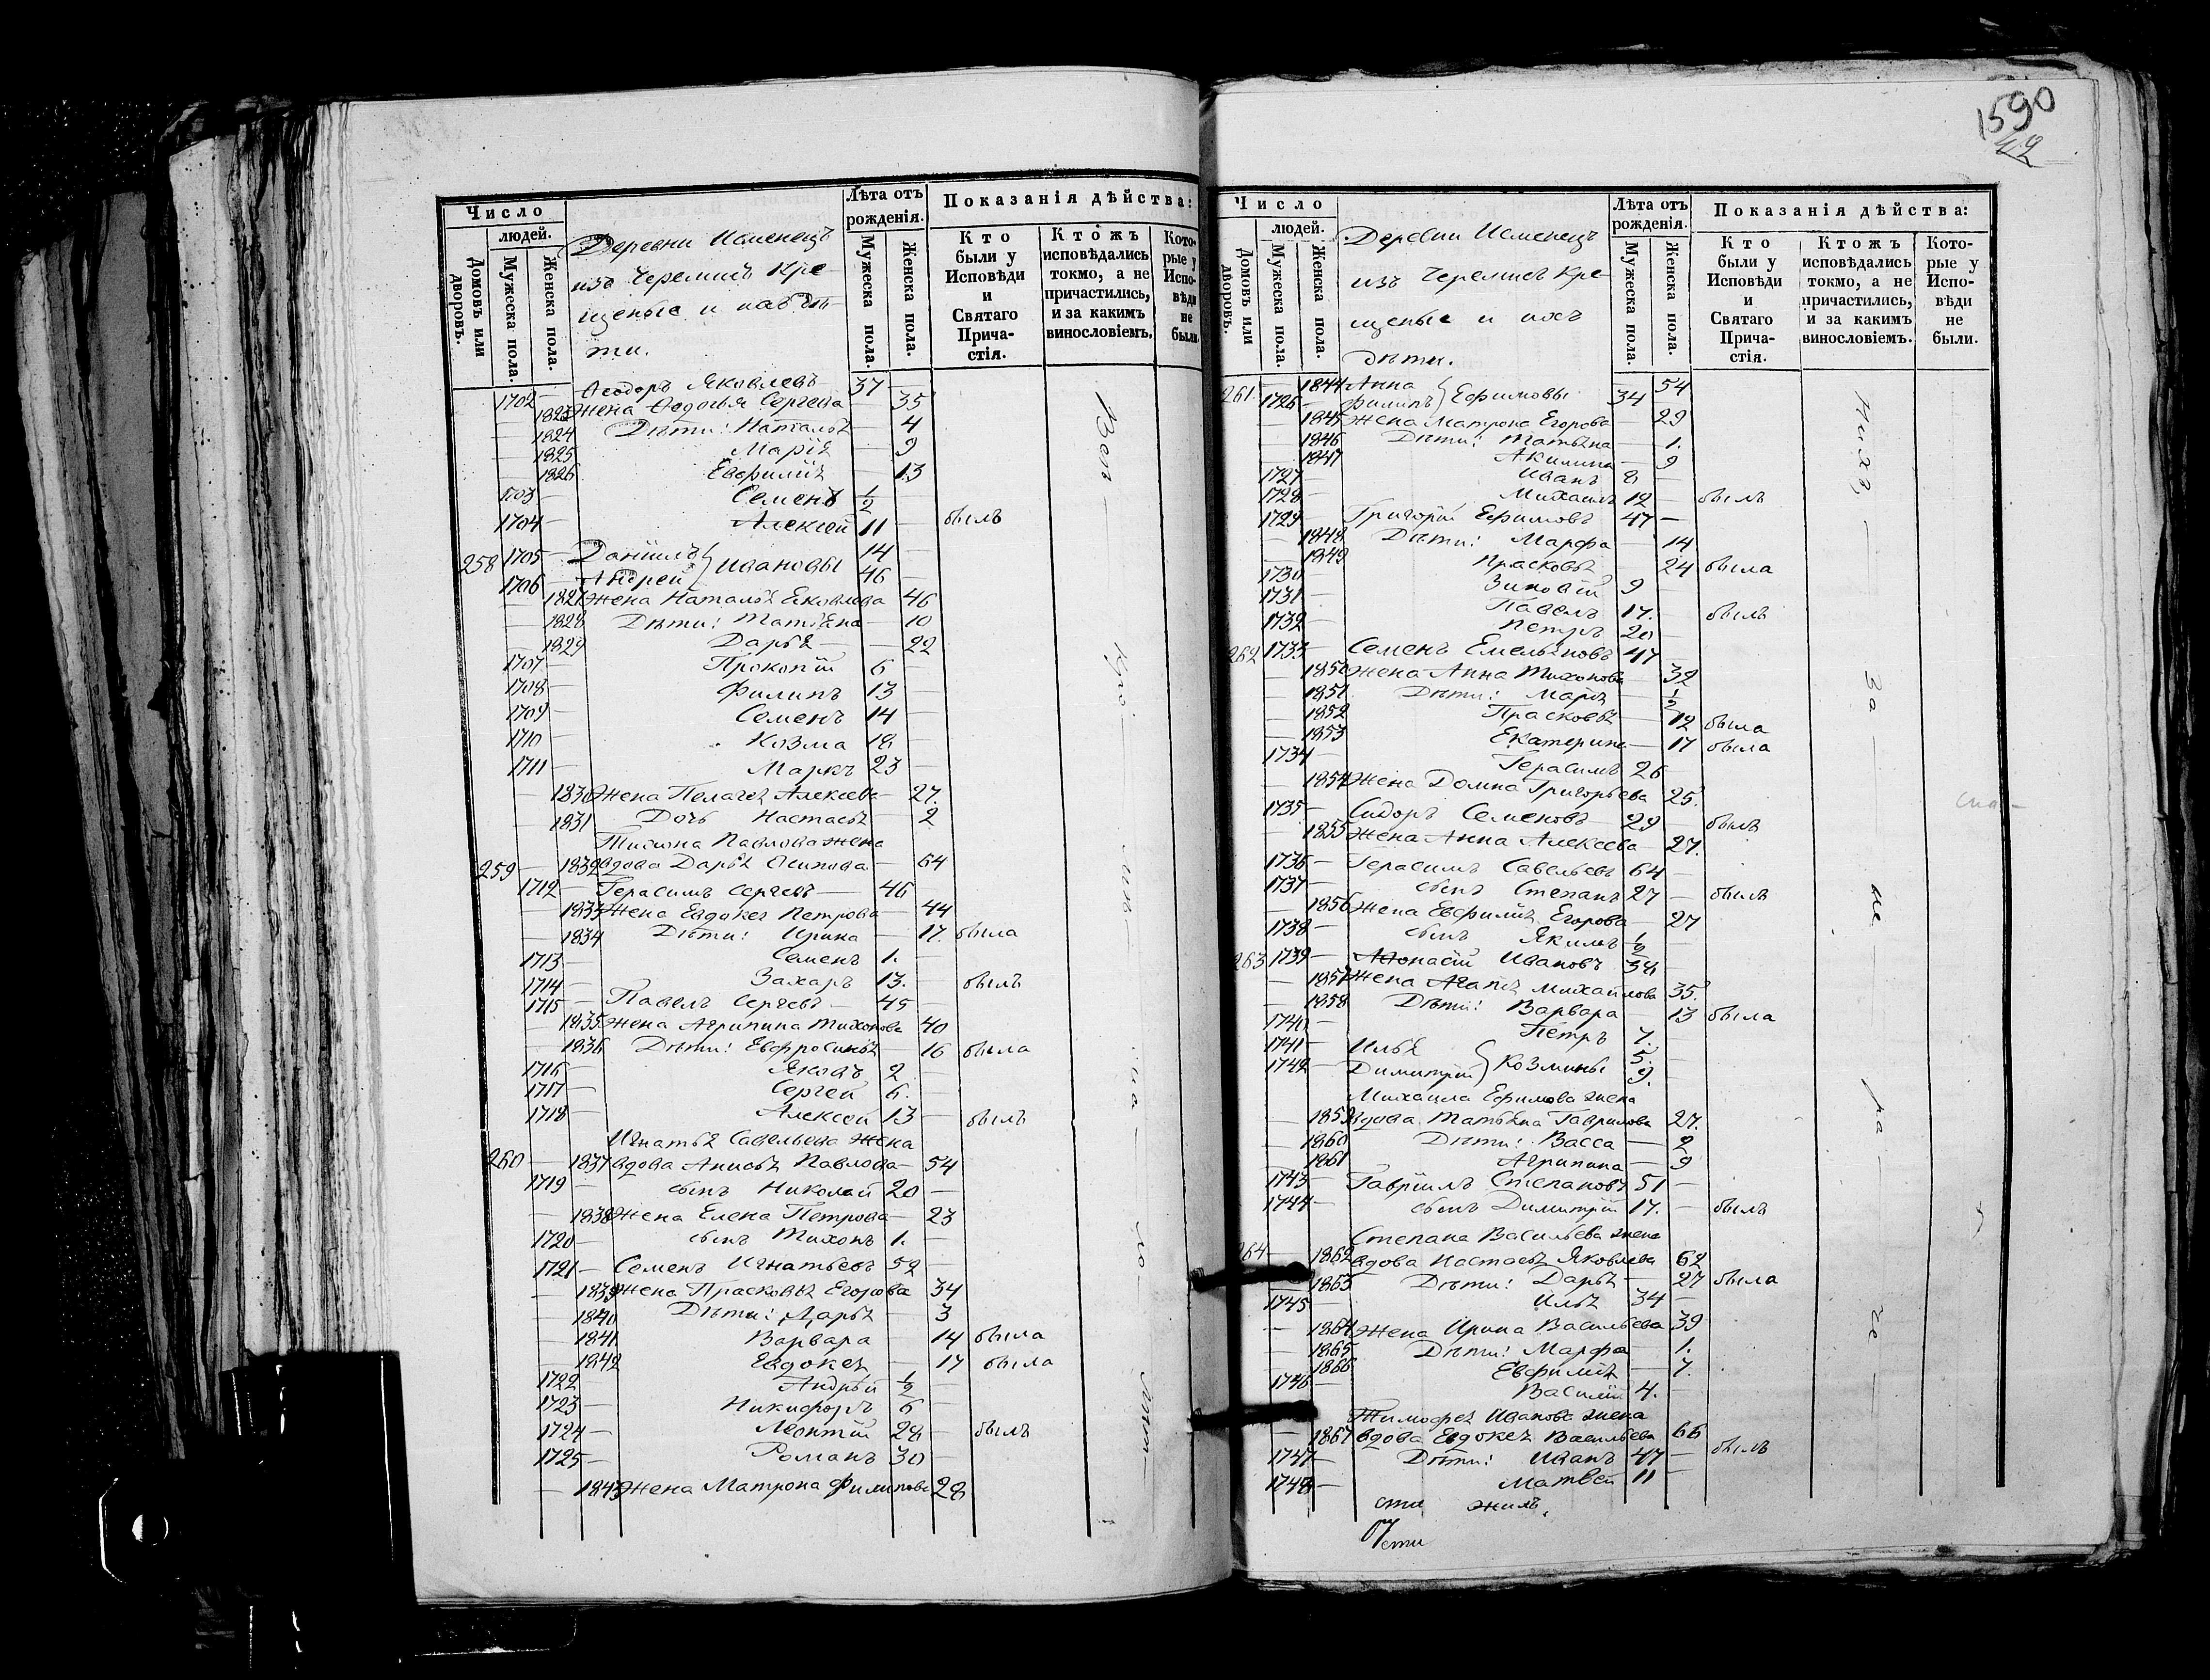 1590
42
Число
людей.
Домовъ или дворовъ.
Мужеска пола.
Женска пола.
Деревни Исменецъ
изъ Черемисъ кре-
щеные и
ти.
Лѣта отъ рожденія.
Мужеска пола.
Женска пола.
Показанія дѣйства:
Кто были у Исповѣди и Святаго Прича-стія.
Ктожъ исповѣдались токмо, а не причастились, и за какимъ винословіемъ.
Кото-рые у Испо-вѣди не были.
1702 — Ѳеодоръ Яковлевъ 37
— 1823 Жена Ѳедосья Сергеева — 35
— 1824 Дѣти: Наталья — 4
— 1825 Марія — 9
— 1826 Евфимія — 13
1703 — Семенъ 1/2
1704 — Алексѣй 11 — былъ
258 1705 — Даніилъ } Ивановы 14 —
1706 — Андрей 46
— 1827 Жена Наталья Яковлева 46
— 1828 Дѣти: Татьяна — 10
— 1829 Дарья — 22
1707 — Прокопій 6 —
1708 — Филипъ 13 —
1709 — Семенъ 14 —
1710 — Козма 18 —
1711 — Маркъ 23 —
— 1830 Жена Пелагея Алексеева — 27.
— 1831 Дочь Настасья — 2
Тихона Павлова жена
259 — 1832 вдова Дарья Осипова — 64
1712 — Герасимъ Сергеевъ — 46 —
— 1833 Жена Евдокея Петрова — 44
— 1834 Дѣти: Ирина — 17. была
1713 — Семенъ 1. —
1714 — Захаръ 13. — былъ
1715 — Павелъ Сергеевъ — 45 —
— 1835 Жена Агрипина Тихонова 40
— 1836 Дѣти: Евфросинья — 16 была
1716 — Яковъ 2 —
1717 — Сергей 6. —
1718 — Алексѣй 13 — былъ
Игнатья Савельева жена
260 — 1837 вдова Анисья Павлова — 54
1719 — сынъ Николай 20 —
— 1838 Жена Елена Петрова — 23
1720 — сынъ Тихонъ 1. —
1721 — Семенъ Игнатьевъ 52 —
— 1839 Жена Прасковья Егорова 34
— 1840 Дѣти: Дарья — 3
— 1841 Варвара — 14 была
— 1842 Евдокея — 17 была
1722 — Андрей 1/2 —
1723 — Никифоръ 6 —
1724 — Леонтій 28 — былъ
1725 — Романъ 30 —
— 1843 Жена Матрона Филипова 28
Число
людей.
Домовъ или дворовъ.
Мужеска пола.
Женска пола.
Деревни Исменецъ
изъ Черемисъ кре-
щеные и ихъ
дѣти.
Лѣта отъ рожденія.
Мужеска пола.
Женска пола.
Показанія дѣйства:
Кто были у Исповѣди и Святаго Прича-стія.
Ктожъ исповѣдались токмо, а не причастились, и за какимъ винословіемъ.
Кото-рые у Испо-вѣди не были.
261 — 1844 Анна } Ефимовы 54
1726 — Филипъ 34
— 1845 Жена Матрона Егорова — 29
— 1846 Дѣти: Татьяна — 1.
— 1847 Акилина — 9
1727 — Иванъ 8 —
1728 — Михаилъ 12 — былъ
1729 — Григорій Ефимовъ 47 —
— 1848 Дѣти: Марфа — 14
— 1849 Прасковья 24 была
1730 — Зиновій 9 —
1731 — Павелъ 17. — былъ
1732 — Петръ 20 —
262 1733 — Семенъ Емельяновъ 47
— 1850 Жена Анна Тихонова — 32
— 1851 Дѣти: Марья — 1/2
— 1852 Прасковья — 12 была
— 1853 Екатерина — 17 была
1734 — Герасимъ 26
— 1854 Жена Домна Григорьева 25.
1735 — Сидоръ Семеновъ 29 — былъ
— 1855 Жена Анна Алексеева — 27.
1736 — Герасимъ Савельевъ 64 —
1737 — сынъ Степанъ 27 — былъ
— 1856 Жена Евфимія Егорова — 27
1738 — сынъ Якимъ 1/2 —
263 1739 — Афонасій Ивановъ 38 —
— 1857 Жена Агапія Михайлова 35.
— 1858 Дѣти: Варвара — 13 была
1740 — Петръ 7. —
1741 — Илья } Козмины 5.
1742 — Димитрій 9.
Михаила Ефимова жена
— 1859 вдова Татьяна Гаврилова 27.
— 1860 Дѣти: Васса — 2
— 1861 Агрипина — 9
1743 — Гавріилъ Степановъ 51 —
1744 — сынъ Димитрій 17. — былъ
Степана Васильева жена
264 — 1862 вдова Настасья Яковлева 62
— 1863 Дѣти: Дарья — 27 была
1745 — Илья 34 —
— 1864 Жена Ирина Васильева 39
— 1865 Дѣти: Марфа — 1.
— 1866 Евфимія — 7.
1746 — Василій 4. —
Тимофея Иванова жена
— 1867 вдова Евдокея Васильева 66
1747 — Дѣти: Иванъ 47 — былъ
1748 — Матвей 11 —